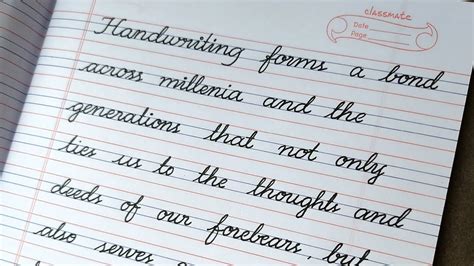 classmate
Date
Page
Handwriting forms a bond
across millenia and the
generations that not only
ties us to the thoughts and
deeds of our forebears, but
also serves